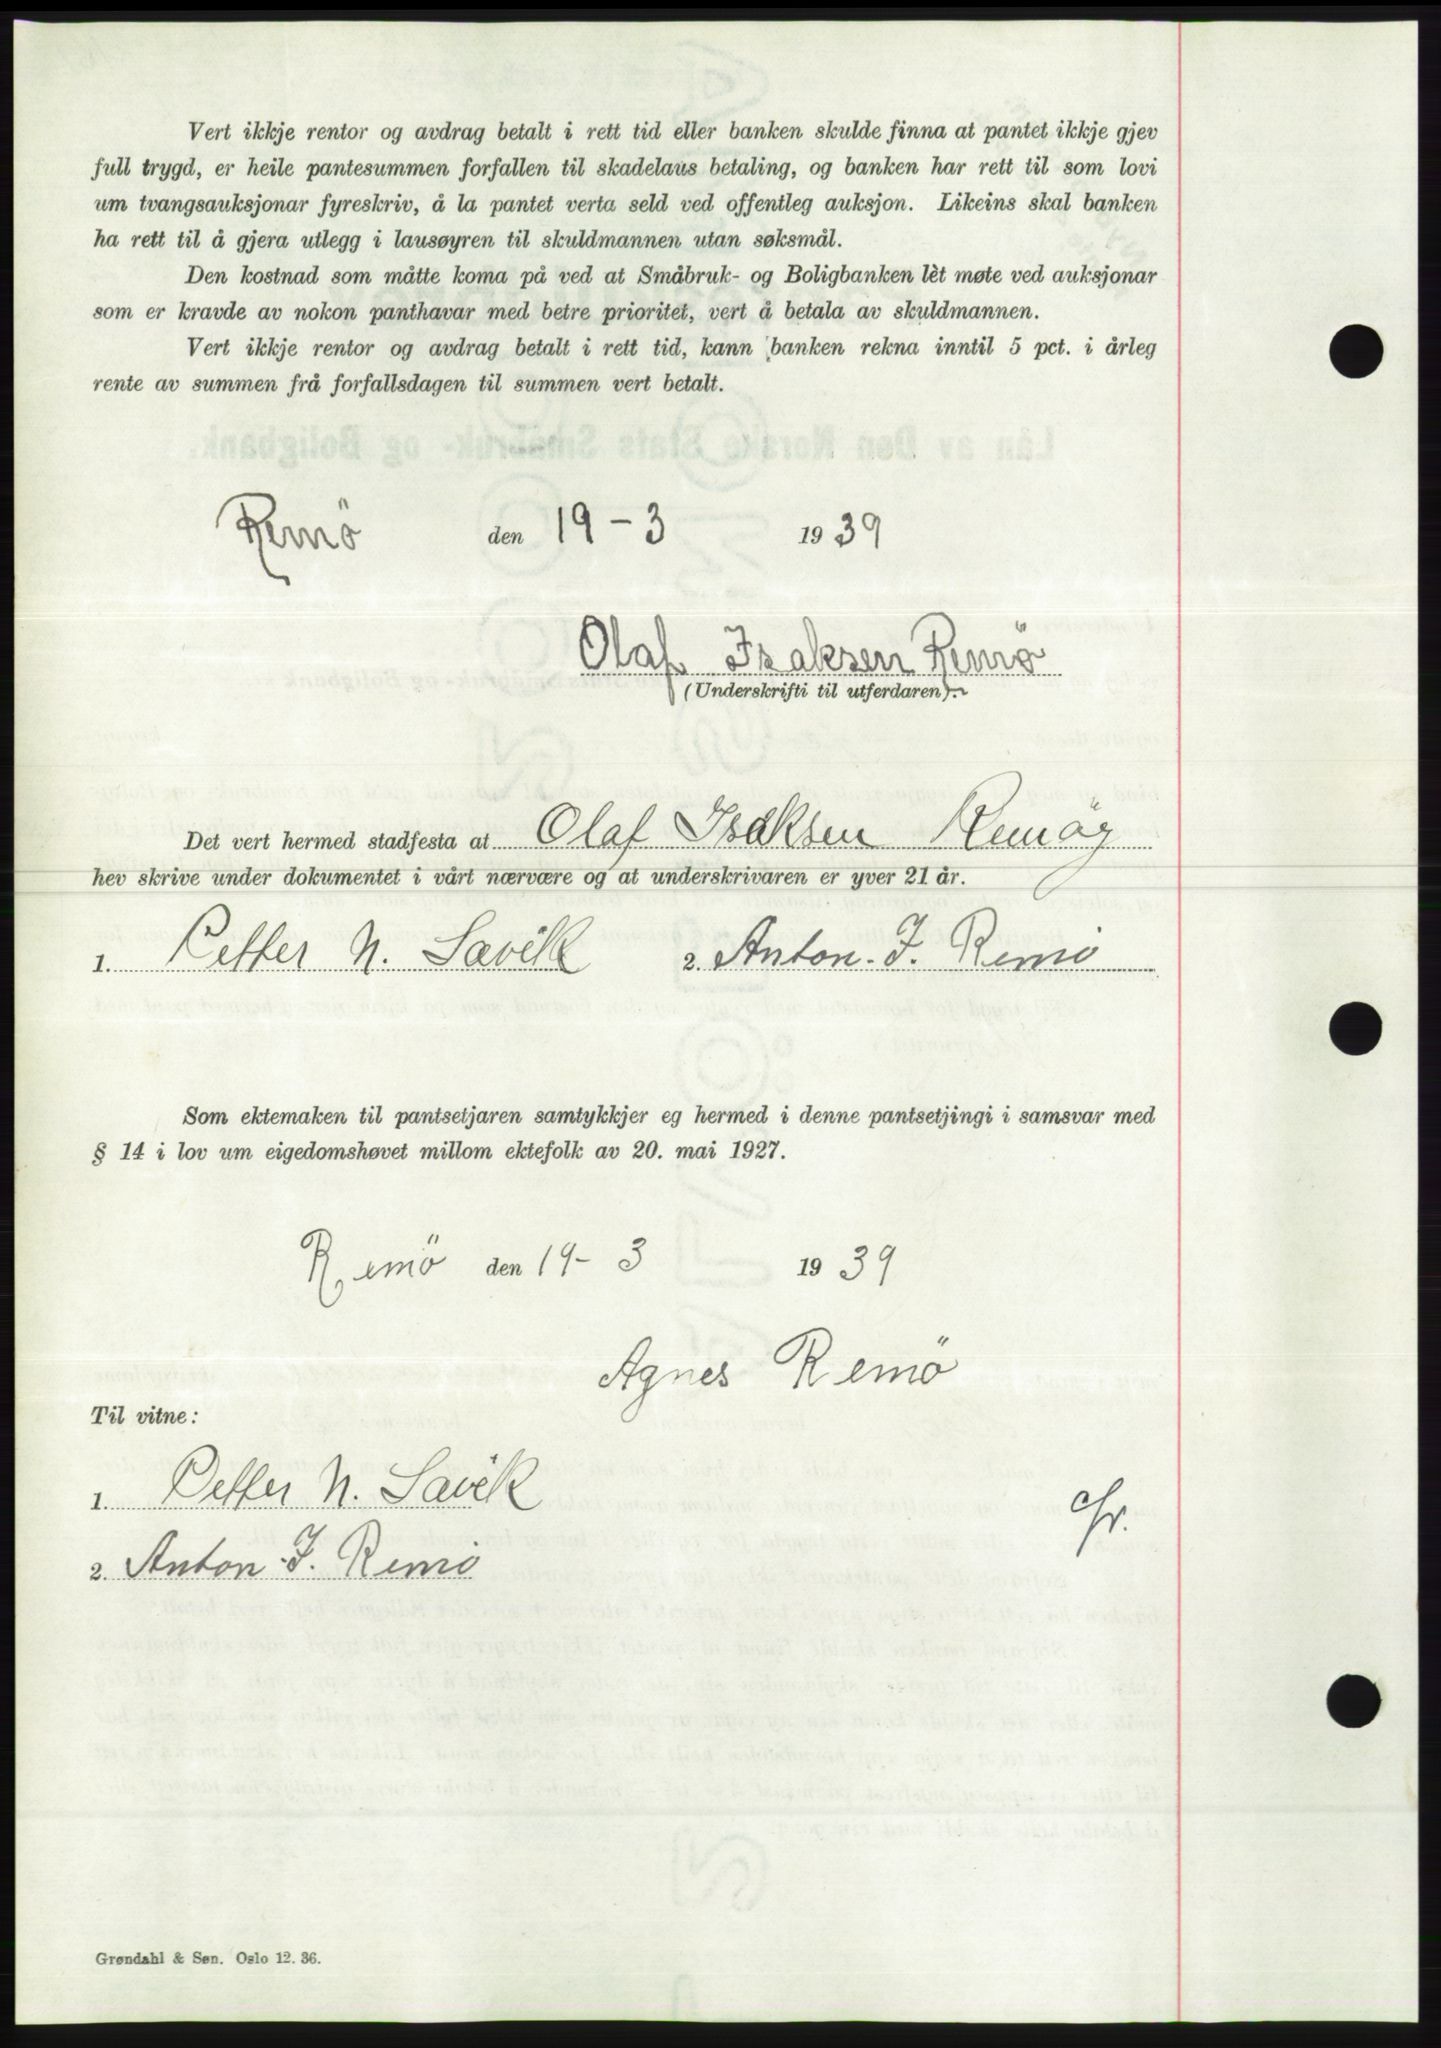 Vert ikkje rentor og avdrag betalt i rett tid eller banken skulde finna at pantet ikkje gjev
full trygd, er heile pantesummen forfallen til skadelaus betaling, og banken har rett til som lovi
um tvangsauksjonar fyreskriv, å la pantet verta seld ved offentleg auksjon. Likeins skal banken
ha rett til å gjera utlegg i lausøyren til skuldmannen utan søksmål.
Den kostnad som måtte koma på ved at Småbruk- og Boligbanken lèt møte ved auksjonar
som er kravde av nokon panthavar med betre prioritet, vert å betala av skuldmannen.
Vert ikkje rentor og avdrag betalt i rett tid, kann banken rekna inntil 5 pct. i årleg
rente av summen frå forfallsdagen til summen vert betalt.
Remö den 19-3 1939
Olaf Isaksen Remö
(Underskrifti til utferdaren).
Det vert hermed stadfesta at Olaf Isaksen Remöy
hev skrive under dokumentet i vårt nærvære og at underskrivaren er yver 21 år.
1. Petter N. Sævik 2. Anton. J. Remö
Som ektemaken til pantsetjaren samtykkjer eg hermed i denne pantsetjingi i samsvar med
§ 14 i lov um eigedomshøvet millom ektefolk av 20. mai 1927.
Remö den 19-3 1939
Agnes Remö
Til vitne:
1. Petter N. Sævik
2. Anton J. Remö
Grøndahl & Søn. Oslo 12. 36.